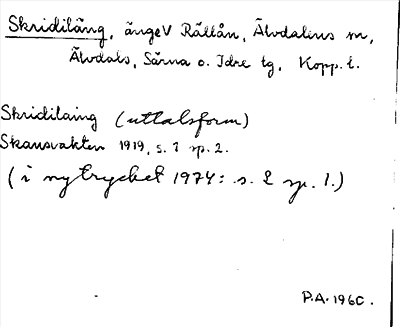 Skridiläng, ängeV Råttån, Älvdalens sn,
Älvdals, Särna o. Idre tg, Kopp. l.
Skridilaing (uttalsform)
Skansvakten 1919, s. 1 sp. 2.
(i nytrycket 1974: s. 2 sp. 1.)
P.A. 1960.